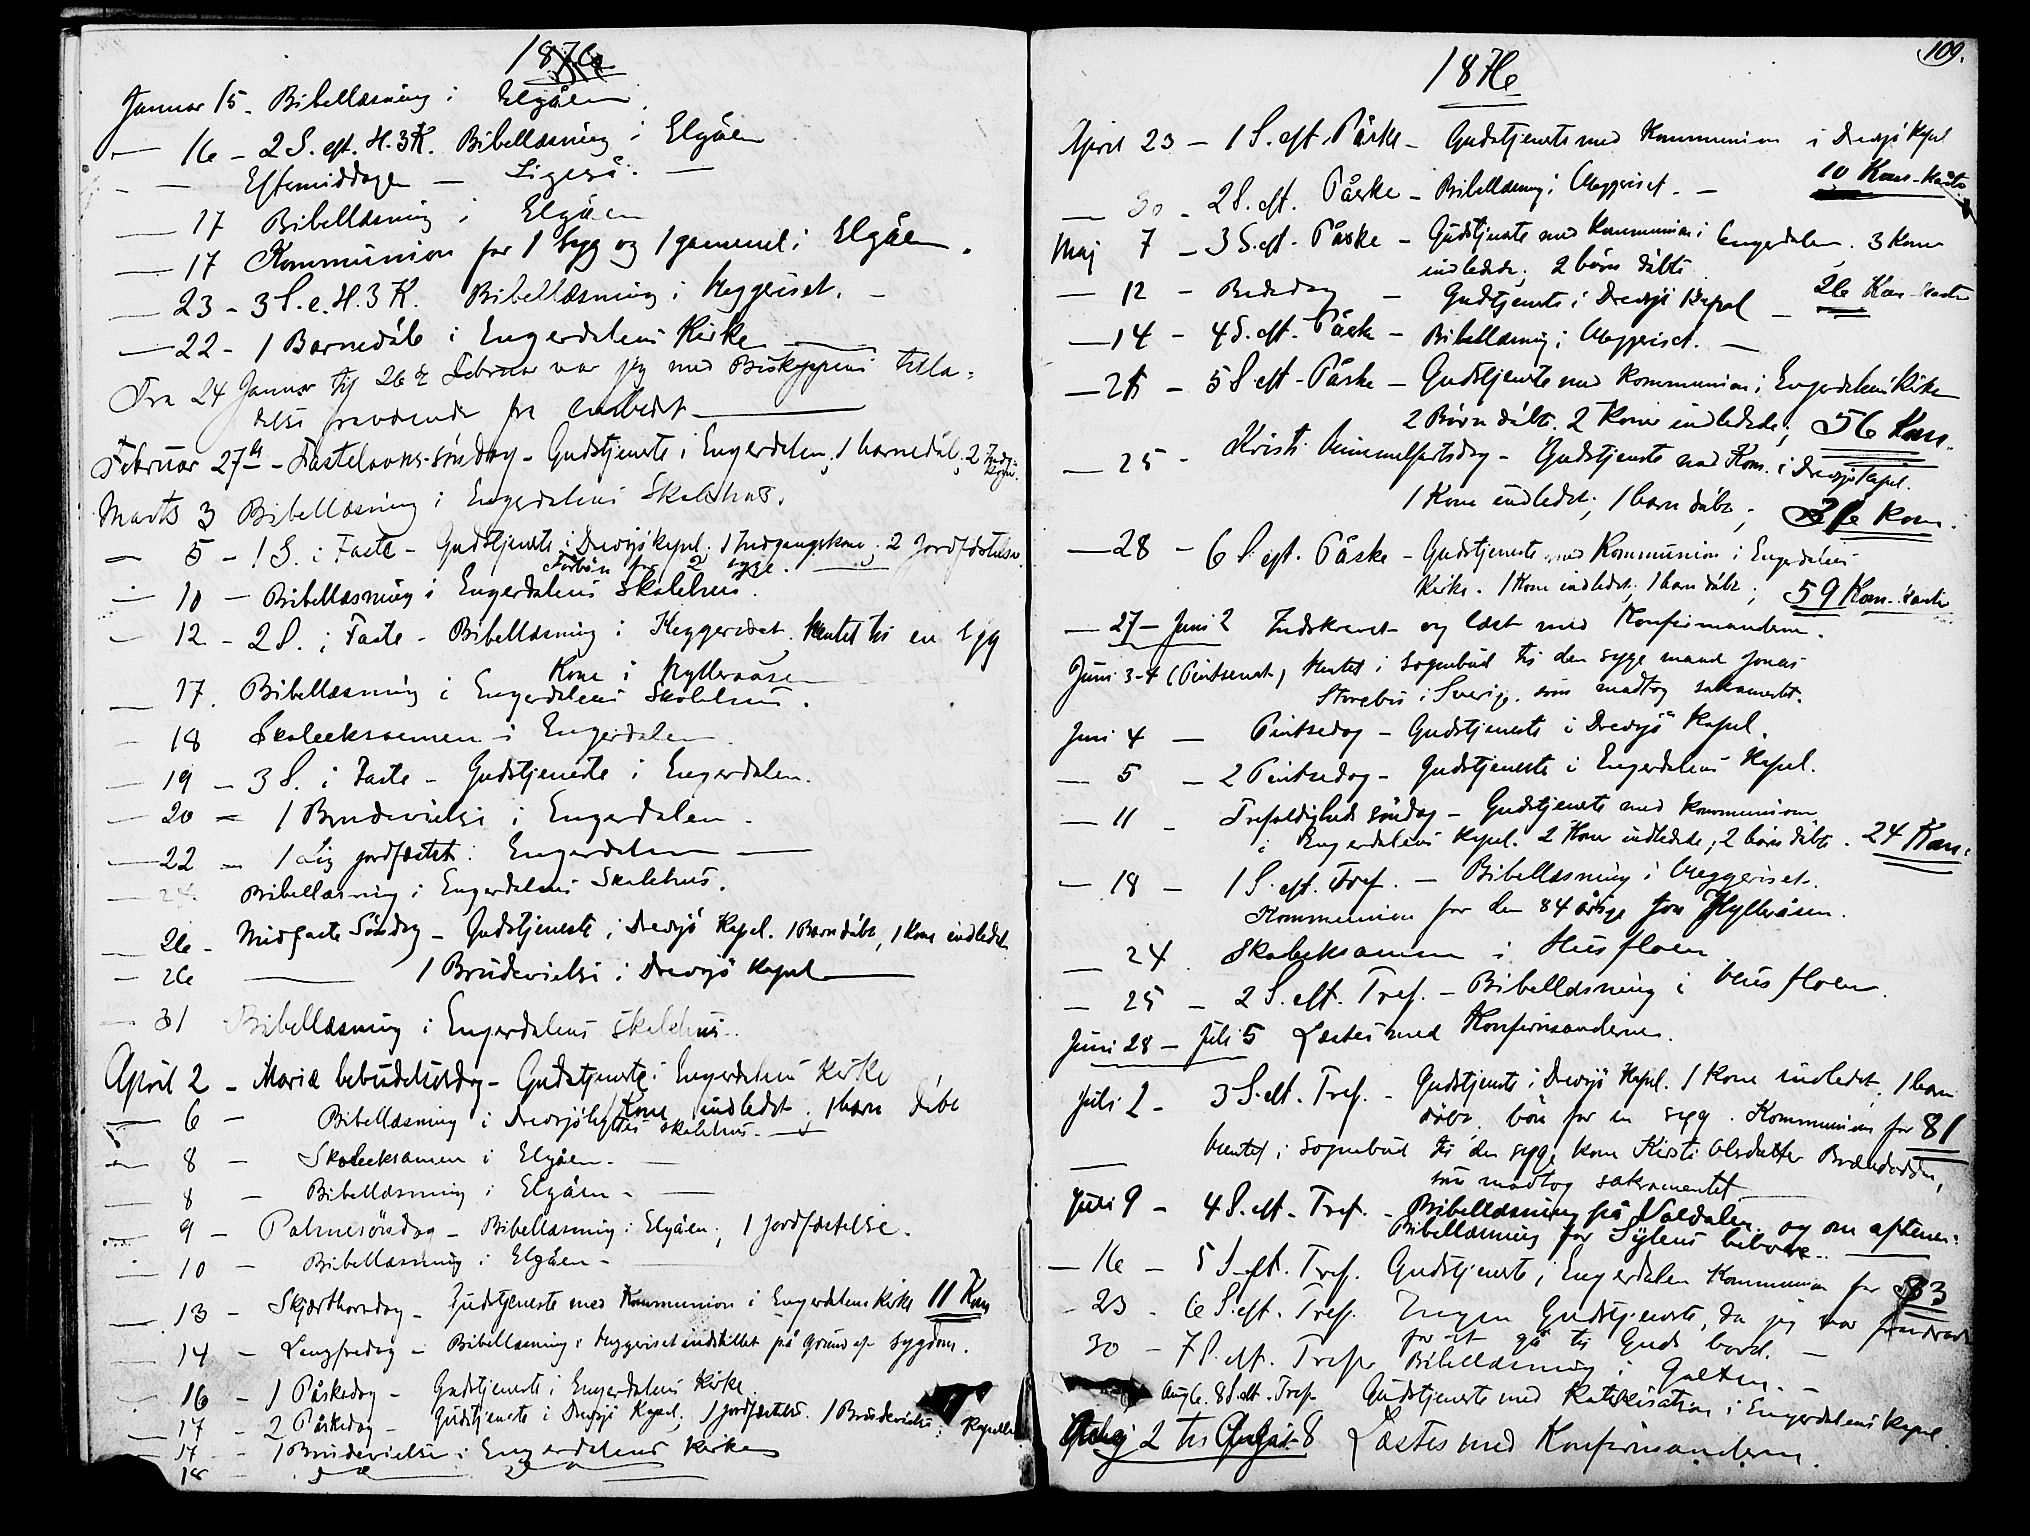 1876
Januar 15. Bibellæsning i Elgåen.
— 16 - 2 S. eft. H. 3 K. Bibellæsning i Elgåen
- — Eftermiddagen —
— 17 Bibellæsning i Elgåen
— 17 Kommunion for 1 syg og 1 gammel i Elgåen.
— 23 - 3 S. e. H. 3 K. Bibellæsning i Heggeriset. —
— 22 - 1 Barnedåb i Engerdalens Kirke —
Fra 24 Januar til 26 Februar var jeg med Biskoppens tilla-
delse fraværende fra Embedet —
Februar 27 - Fastelavns-søndag - Gudstjeneste i Engerdalen, 1 barnedåb, 2
Marts 3 Bibellæsning i Engerdalens Skolehus.
— 5 - 1 S. i Faste - Gudstjeneste i Drevsjö kapel. 1 Indgangskone; 2 Jordfæstelser
Forbön for 2 syge.
— 10 — Bibellæsning i Engerdalens Skolehus.
— 12 - 2 S. i Faste - Bibellæsning i Heggeriset. Hentet til en syg
Kone i Hylleraasen
— 17. Bibellæsning i Engerdalens Skolehus.
— 18 Skoleeksamen i Engerdalen.
— 19 - 3 S. i Faste - Gudstjeneste i Engerdalen.
— 20 - 1 Brudevielse i Engerdalen.
— 22 - 1 Lig jordfæstet i Engerdalen —
24. Bibellæsning i Engerdalens Skolehus.
— 26 - Midfaste Søndag - Gudstjeneste i Drevsjö Kapel. 1 Barn döbt, 1 Kone indledet
— 26 — 1 Brudevielse i Drevsjö Kapel —
— 31 Bibellæsning i Engerdalens skolehus.
April 2 - Mariæ bebudelsesdag - Gudstjeneste i Engerdalens Kirke
1 Kone indledet. 1 barn döbt
— 6 — Bibellæsning i skolehus. —
— 8 — Skoleeksamen i Elgåen. —
— 8 — Bibellæsning i Elgåen - —
— 9 — Palmesöndag - Bibellæsning i Elgåen, 1 Jordfæstelse.
— 10 — Bibellæsning i Elgåen - —
— 13 - Skjærthorsdag - Gudstjeneste med Kommunion i Engerdalens Kirke 11 Kom
— 14 - Langfredag - Bibellæsning i Heggeriset indstillet på Grund af sygdom.
— 16 - 1 Påskedag - Gudstjeneste i Engerdalens Kirke
— 17 - 2 Påskedag - Gudstjeneste i Drevsjö Kapel, 1 Jordfæstelse. 1 Brudevielse i Kapellet
— 17 - 1 Brudevielse i Engerdalens Kirke
18
109.
1876
April 23 - 1 S. eft. Påske - Gudstjeneste med Kommunion i Drevsjö Kapel
10 Kom
— 30 - 2 S. eft. Påske - Bibellæsning i Heggeriset. —
Maj 7 - 3 S. eft. Påske - Gudstjeneste med Kommunion i Engerdalen. 3 Koner
indledede; 2 børn döbte
— 12 - Bededag - Gudstjeneste i Drevsjö Kapel - 26 Kom
— 14 - 4 S. eft. Påske - Bibellæsning i Heggeriset. —
— 21 - 5 S. eft. Påske - Gudstjeneste med Kommunion i Engerdalens Kirke
2 Börn döbte. 2 Koner indledede; 56 Kom.
— 25 - Kristi Himmelfartsdag - Gudstjeneste med Kom. i Drevsjö Kapel.
1 Kone indledet; 1 barn döbt; Kom.
— 28 - 6 S. eft. Påske - Gudstjeneste med Kommunion i Engerdalens
Kirke. 1 Kone indledet; 1 barn döbt; 59 Kom.
— 27 - Juni 2 Indskrevet og læst med Konfirmanderne.
Juni 3-4 (Pintsenat) Hentet i Sognebud til den syge mand Jonas
i Sverig. som modtog sakramentet.
Juni 4 — Pintsedag - Gudstjeneste i Drevsjö Kapel.
— 5 - 2 Pintsedag - Gudstjeneste i Engerdalens Kapel.
— 11 - Trefoldigheds söndag - Gudstjeneste med Kommunion
i Engerdalens Kapel. 2 Koner indledede, 2 börn döbte. 24 Kom.
— 18 - 1 S. eft. Tref. - Bibellæsning i Heggeriset.
Kommunion for den 84 årige Jon Hylleråsen.
— 24. Skoleeksamen i Husfloen
— 25 - 2 S. eft. Tref. - Bibellæsning i Husfloen.
Juni 28 - Juli 5 Læstes med Konfirmanderne.
Juli 2 - 3 S. eft. Tref. - Gudstjeneste i Drevsjö Kapel. 1 Kone indledet, 1 barn
döbt, bön for en syg. Kommunion for 81
— Hentet i Sognebud til den syge kone Kirsti Olsdatter
som modtog sakramentet. —
Juli 9 - 4 S. eft. Tref. - Bibellæsning på Valdalen og om aftenen
Bibellæsning for Sylens beboere. —
— 16 - 5 S. eft. Tref. Gudstjeneste i Engerdalen Kommunion for 83
- 23 - 6 S. eft. Tref. Ingen Gudstjeneste, da jeg var
for at gå til Guds bord. —
30 - 7 S. eft. Tref. Bibellæsning i Galten. -
Aug 6. 8 S. eft. Tref. Gudstjeneste med Katekisation i Engerdalens Kapel.
2 til August 8 Læstes med Konfirmanderne.